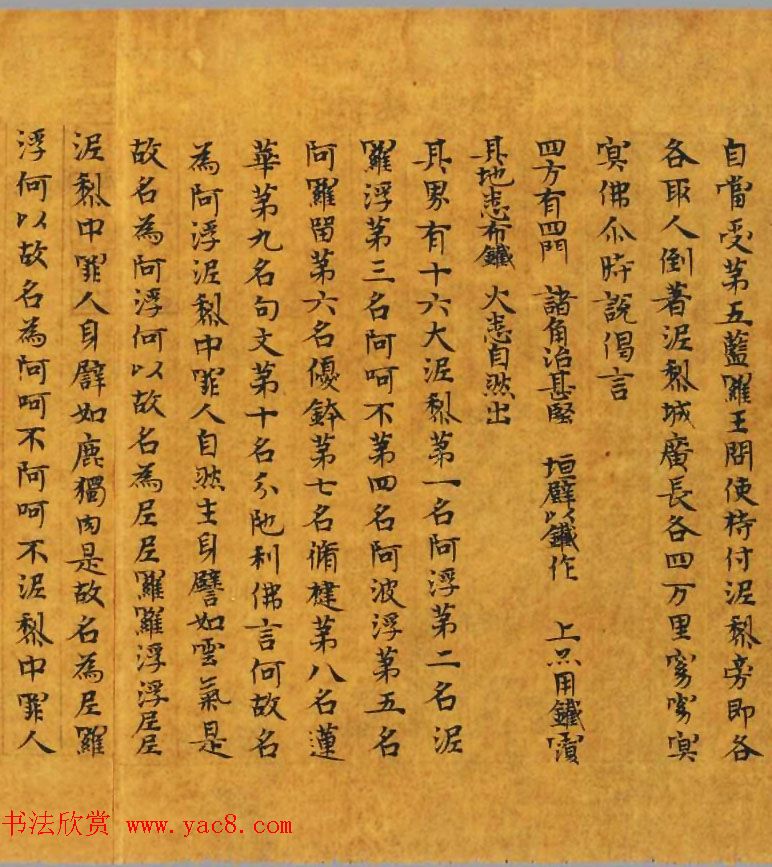 自當受第五藍羅王問使持付泥黎旁即各
各取人倒著泥黎城廣長各四万里窈窈冥
冥佛尒時說偈言
四方有四門 諸角治甚堅 垣壁以鐵作 上亦用鐵
其地悉布鐵 火悉自然出
其界有十六大泥黎第一名阿浮第二名泥
羅浮第三名阿呵不第四名阿波浮第五名
阿羅留第六名優鉢第七名脩揵第八名蓮
華第九名句文第十名分陁利佛言何故名
為阿浮泥黎中罪人自然生身譬如雲氣是
故名為阿浮何以故名為尼尼羅羅浮浮尼尼
泥黎中罪人身譬如鹿獨肉是故名為尼羅
浮何以故名為阿呵不阿呵不泥黎中罪人
书法欣赏 www.yac8.com